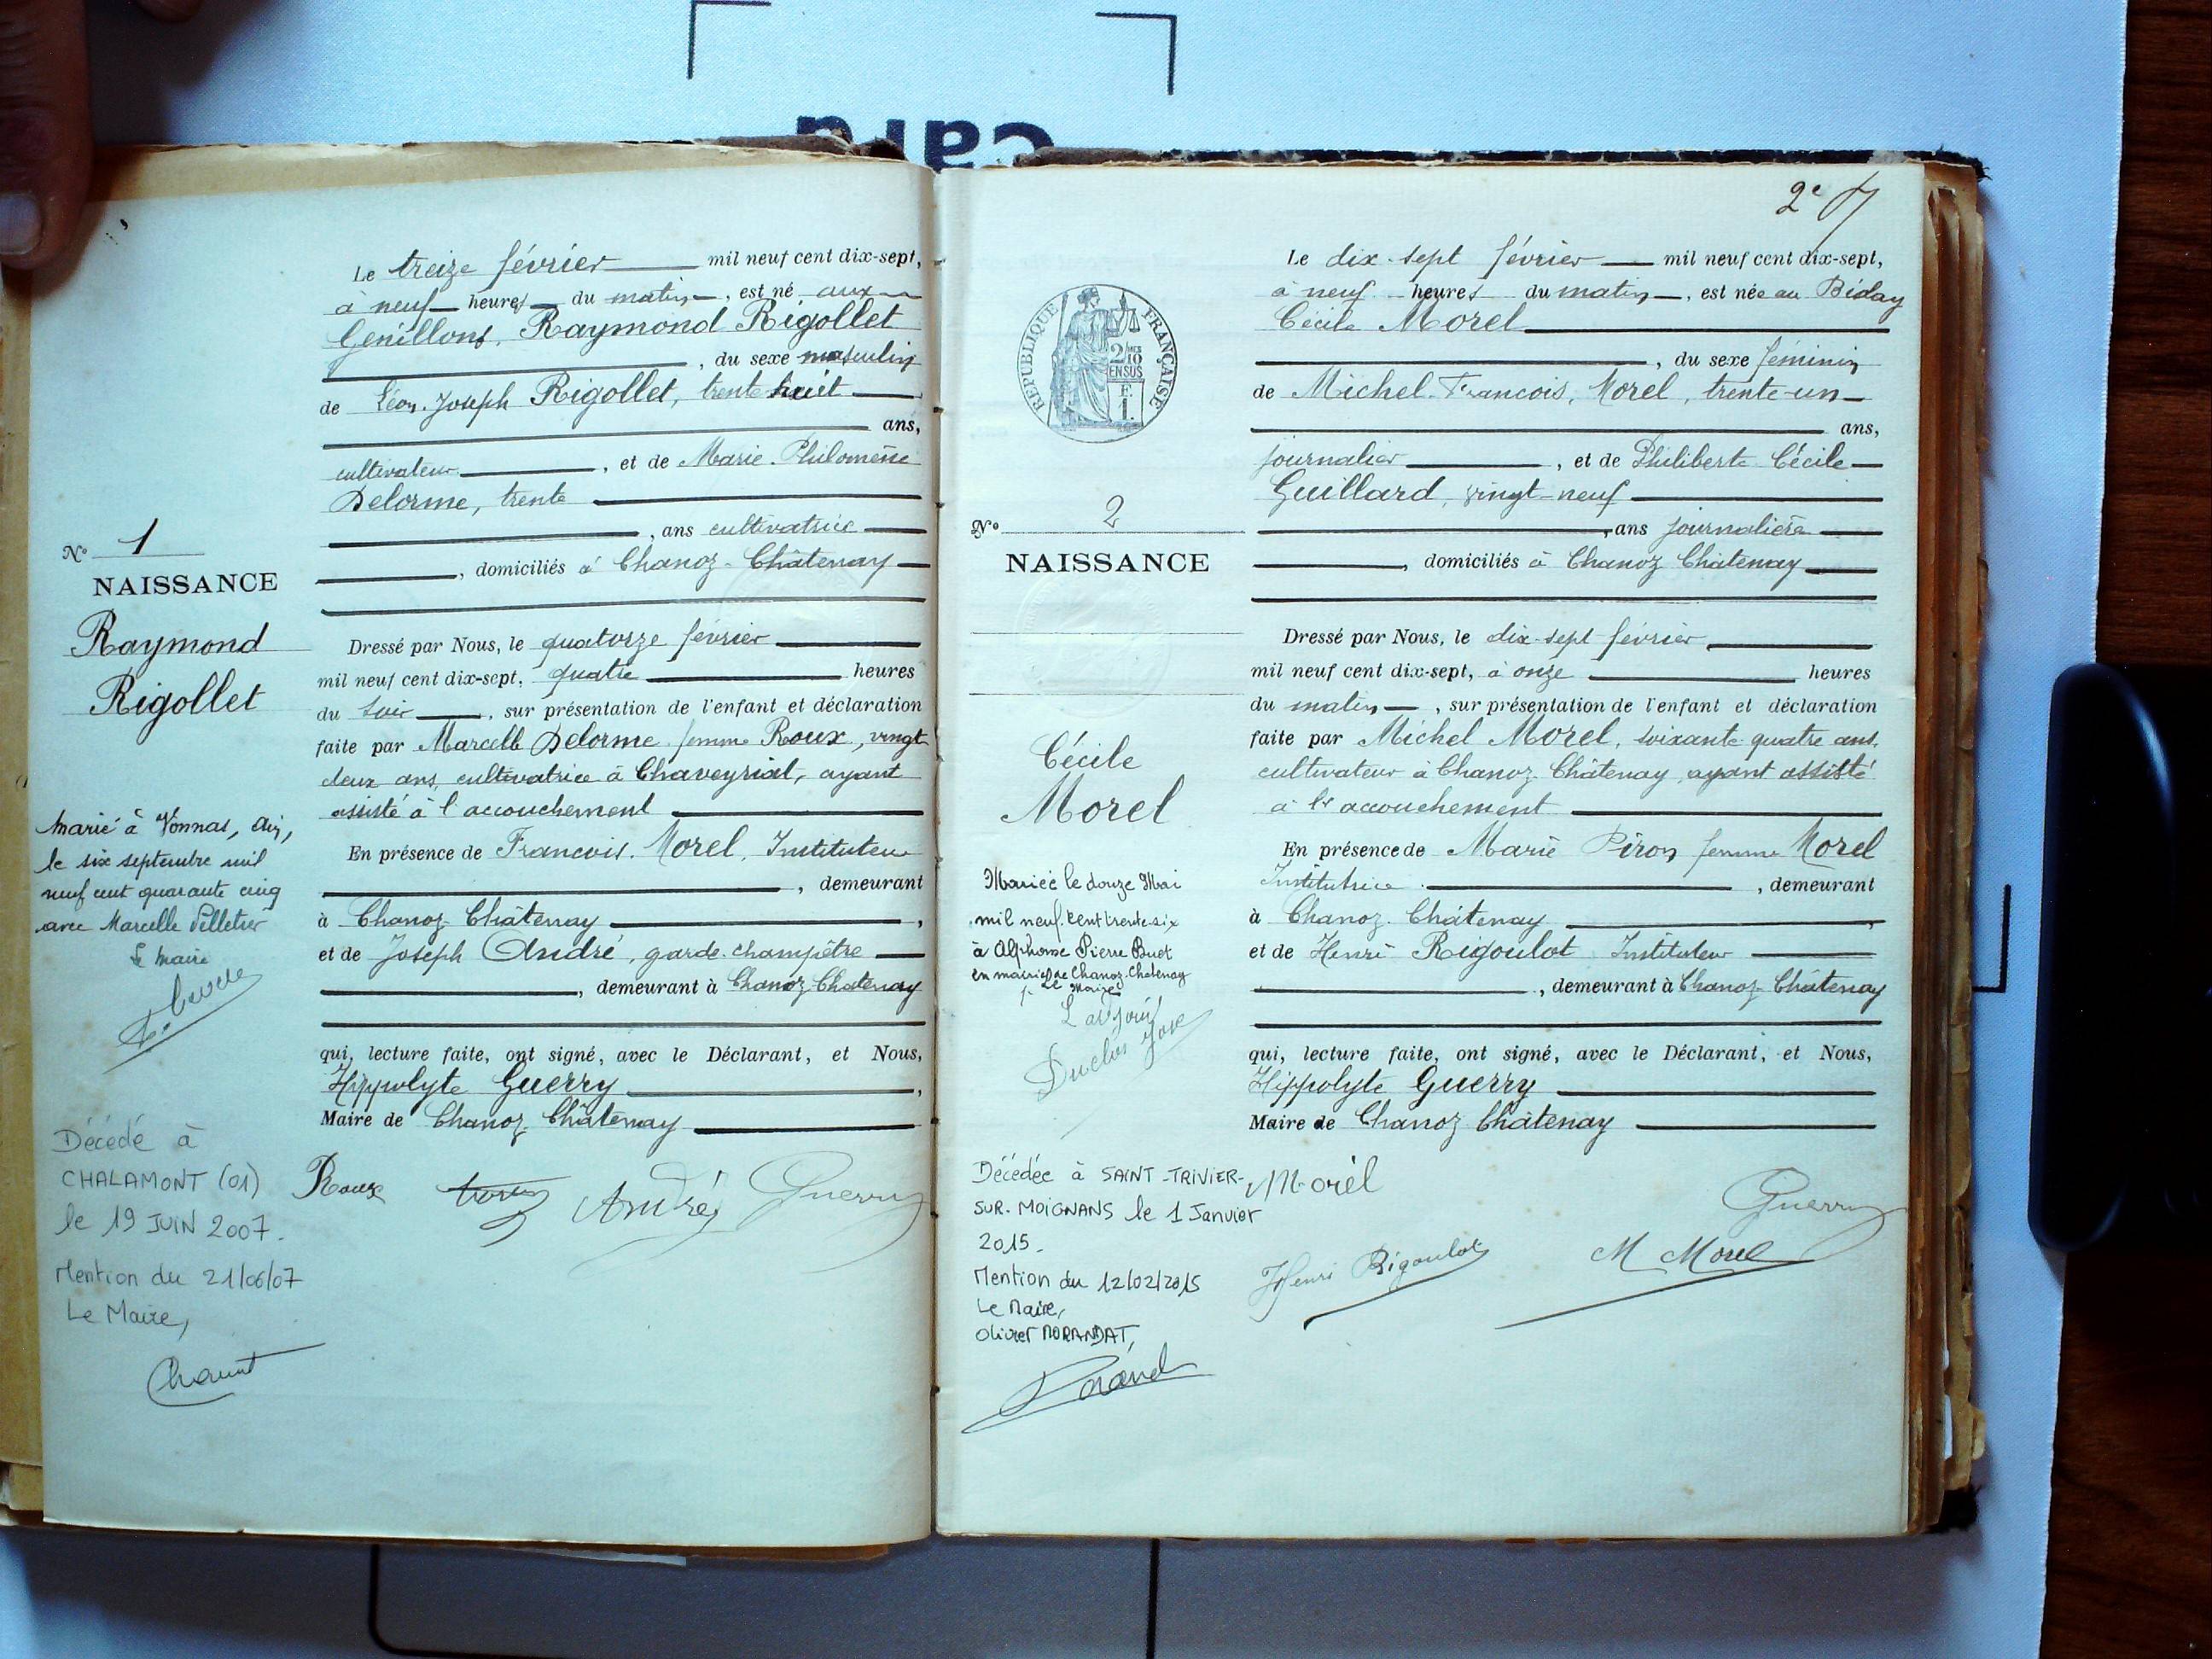 Card
N° 1
NAISSANCE
Raymond
Rigollet
marié à Vonnas, Ain,
le six septembre mil
neuf cent quarante cinq
avec Marcelle Pelletier
Le maire
Décédé à
CHALAMONT (01)
le 19 JUIN 2007.
Mention du 21/06/07
Le Maire,
Le treize février mil neuf cent dix-sept,
à neuf heures du matin, est né aux
Genillons, Raymond Rigollet
, du sexe masculin
de Léon Joseph Rigollet, trente huit
ans,
cultivateur, et de Marie Philomène
Delorme, trente
, ans cultivatrice
, domiciliés à Chanoz-Châtenay
Dressé par Nous, le quatorze février
mil neuf cent dix-sept, quatre heures
du soir, sur présentation de l'enfant et déclaration
faite par Marcelle Delorme femme Roux, vingt
deux ans, cultivatrice à Chaveyriat, ayant
assisté à l'accouchement
En présence de François Morel, Instituteur
, demeurant
à Chanoz-Châtenay,
et de Joseph André, garde-champêtre
, demeurant à Chanoz-Châtenay
qui, lecture faite, ont signé, avec le Déclarant, et Nous,
Hippolyte Guerry,
Maire de Chanoz-Châtenay
Roux André Guerry
2e
RÉPUBLIQUE FRANÇAISE
2/10
EN SUS
F
1.
N° 2
NAISSANCE
Cécile
Morel
Mariée le douze Mai
mil neuf cent trente-six
à Alphonse Pierre Buet
en mairie de Chanoz-Chatenay
Le Maire
Décédée à SAINT-TRIVIER-
SUR-MOIGNANS le 1 Janvier
2015.
Mention du 12/02/2015
Le Maire,
Olivier MORANDAT,
Le dix-sept février mil neuf cent dix-sept,
à neuf heures du matin, est née au Biday
Cécile Morel
, du sexe féminin
de Michel François Morel, trente-un
ans,
journalier, et de Philiberte Cécile
Guillard, vingt-neuf
, ans journalière
, domiciliés à Chanoz Châtenay
Dressé par Nous, le dix-sept février,
mil neuf cent dix-sept, à onze heures
du matin, sur présentation de l'enfant et déclaration
faite par Michel Morel, soixante quatre ans,
cultivateur à Chanoz-Châtenay, ayant assisté
à l'accouchement
En présence de Marie Piron femme Morel
Institutrice, demeurant
à Chanoz-Châtenay,
et de Henri Rigoulot Instituteur
, demeurant à Chanoz-Châtenay
qui, lecture faite, ont signé, avec le Déclarant, et Nous,
Hippolyte Guerry
Maire de Chanoz Châtenay
Morel Guerry
Henri Rigoulot M Morel